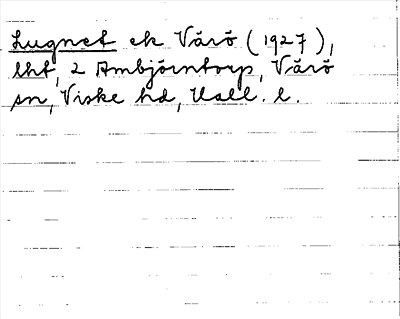 Lugnet ek Värö (1927),
lht, 2 Ambjörntorp, Värö
sn, Viske hd, Hall. l.